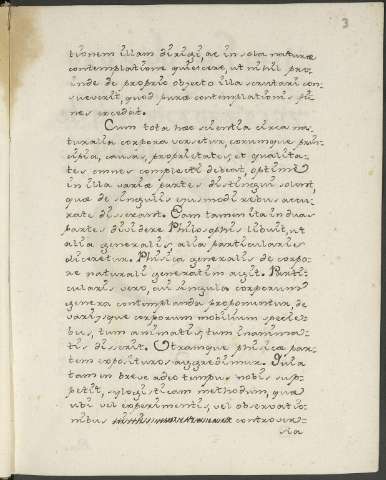 3
tionem illam dirigi, ac in sola naturæ
contemplatione quiescere, ut nihil pro-
inde de proprio objecto illa scrutari con-
sueverit, quod puræ contemplationis fi-
nes excedat.
Cum tota hæc scientia circa na-
turalia corpora versetur, eorumque prin-
cipia, causas, proprietates, et qualita-
tes omnes complecti debeat, optime
in illa variæ partes distingui solent,
quæ de singulis ejusmodi rebus accu-
rate disserant. Eam tamen ita in duas
partes dividere Philosophis libuit, ut
alia generalis, alia particularis
diceretur. Phisica generalis de corpo-
re naturali generatim agit. Parti-
cularis vero, cui singula corporum
genera contemplanda proponuntur, de
variisque corporum mobilium specie-
bus, tum animatis, tum inanima-
tis disserit. Utramque phisicæ par-
tem exposituros aggredimur.
tamen breve adeo tempus nobis sup-
petit, sylogisticam methodum, quæ
ubi vel experimentis, vel observatio-
nibus controver-
sia